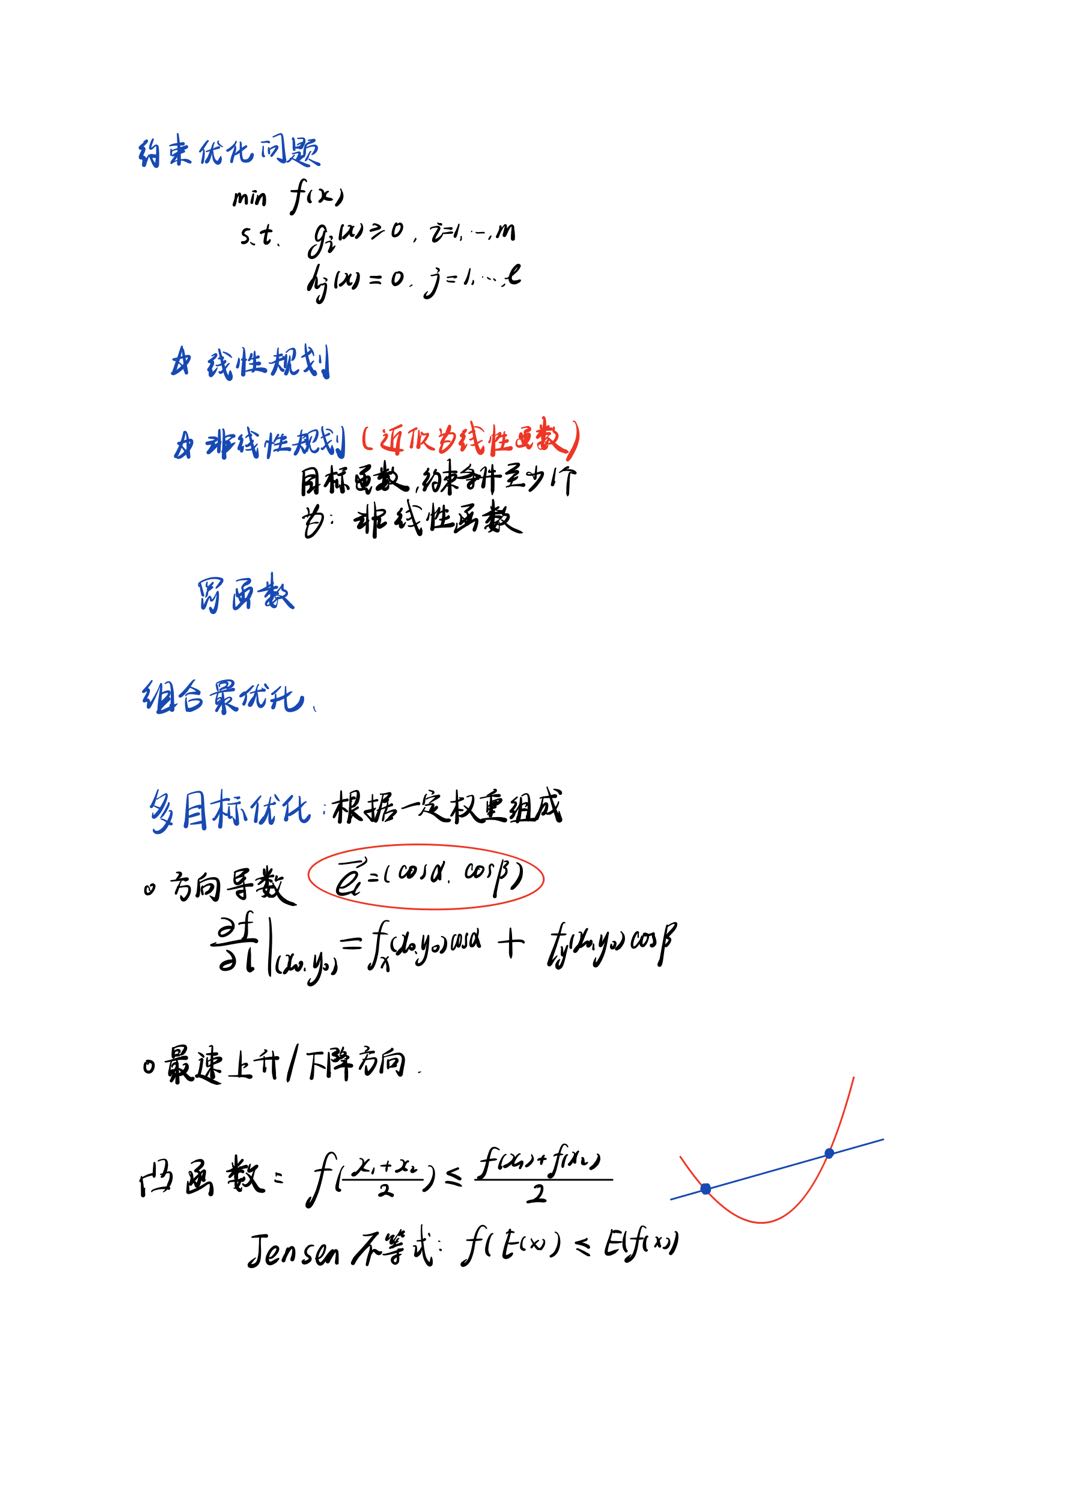 约束优化问题
min f(x)
s.t. gᵢ(x) ≥ 0, i=1,…,m
hⱼ(x) = 0. j=1,…,l
☆ 线性规划
☆ 非线性规划 (近似为线性函数)
目标函数,约束条件至少1个
为: 非线性函数
函数
组合最优化、
多目标优化:根据一定权重组成
○ 方向导数 e⃗ₗ=(cosα. cosβ)
∂f/∂l|(x₀,y₀) = fₓ(x₀,y₀)cosα + f_y(x₀,y₀)cosβ
○ 最速上升/下降方向.
凸函数: f((x₁+x₂)/2) ≤ (f(x₁)+f(x₂))/2
Jensen 不等式: f(E(x)) ≤ E(f(x))